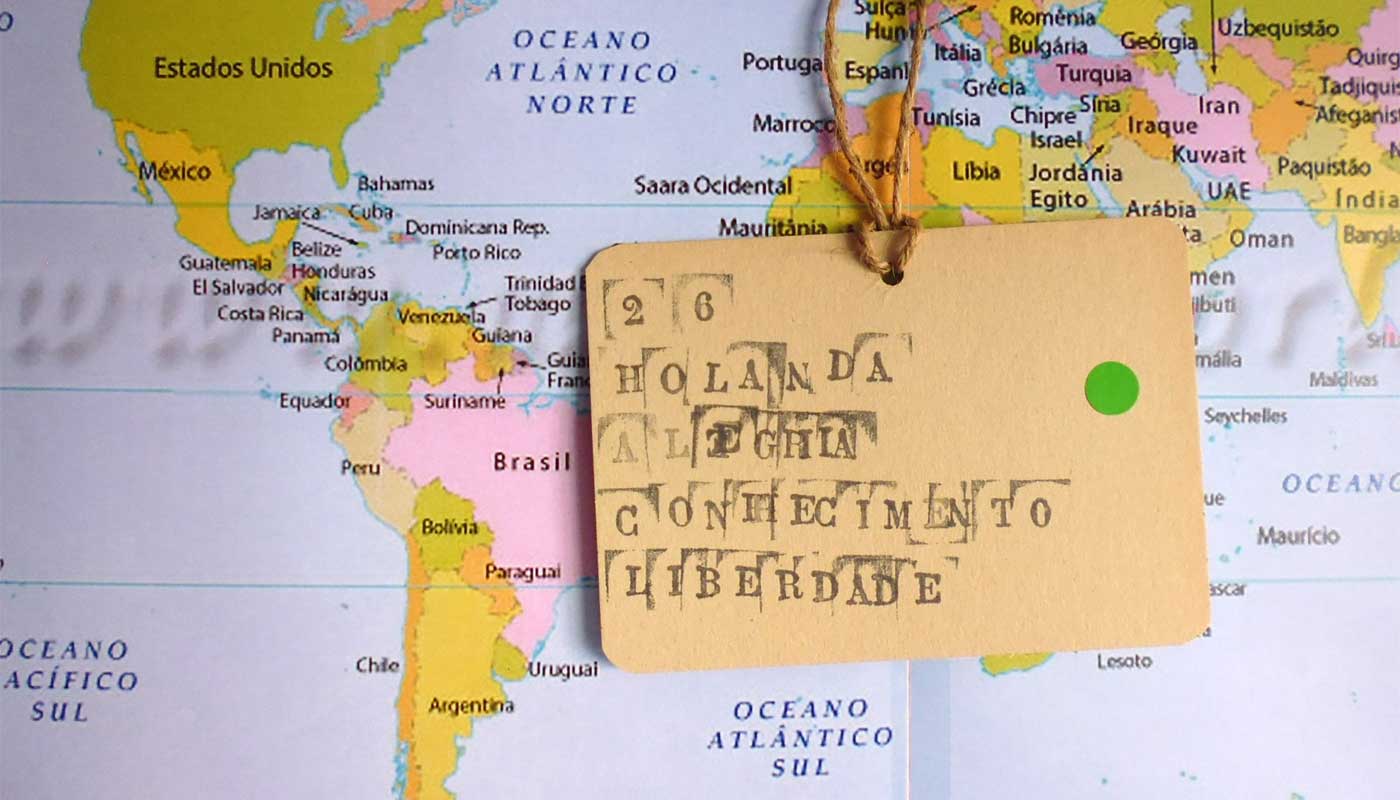 OCEANO
ATLÂNTICO
NORTE
Estados Unidos
México
Bahamas
Jamaica
Cuba
Dominicana Rep.
Porto Rico
Belize
Guatemala
Honduras
El Salvador
Nicarágua
Costa Rica
Panamá
Trinidad
Tobago
Venezuela
Guiana
Colômbia
Equador
Suriname
Peru
Brasil
Bolívia
Paraguai
Chile
Uruguai
Argentina
OCEANO
ACÍFICO
SUL
OCEANO
ATLÂNTICO
SUL
Suíça
Romênia
Bulgária
Geórgia
Uzbequistão
Itália
Turquia
Grécia
Tunísia
Chipre
Síria
Israel
Iraque
Iran
Líbia
Jordânia
Kuwait
Paquistão
Egito
UAE
Índia
Arábia
Oman
Saara Ocidental
Mauritânia
26
HOLANDA
ALEGRIA
CONHECIMENTO
LIBERDADE
Maldivas
Seychelles
Maurício
Lesoto